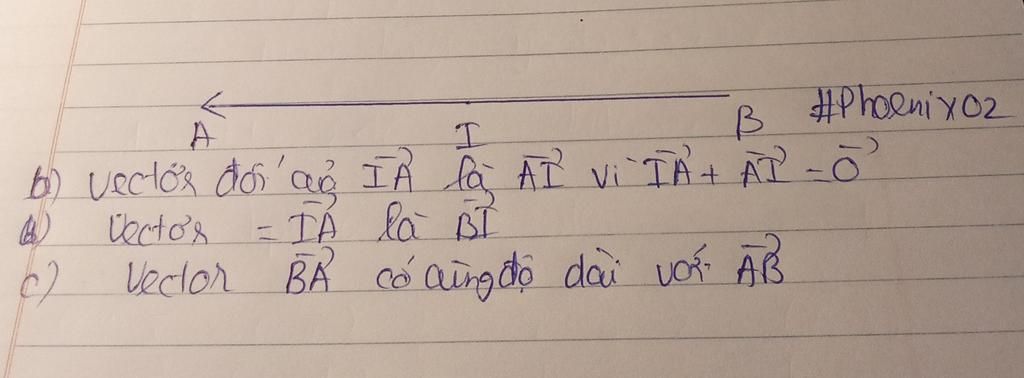 A I B #Phoenix02
b) vectơ đối củ IA⃗ là AI⃗ vì IA⃗ + AI⃗ = 0⃗
a) Vectơ = IA⃗ là BI⃗
c) Vector BA⃗ có cùng độ dài với AB⃗